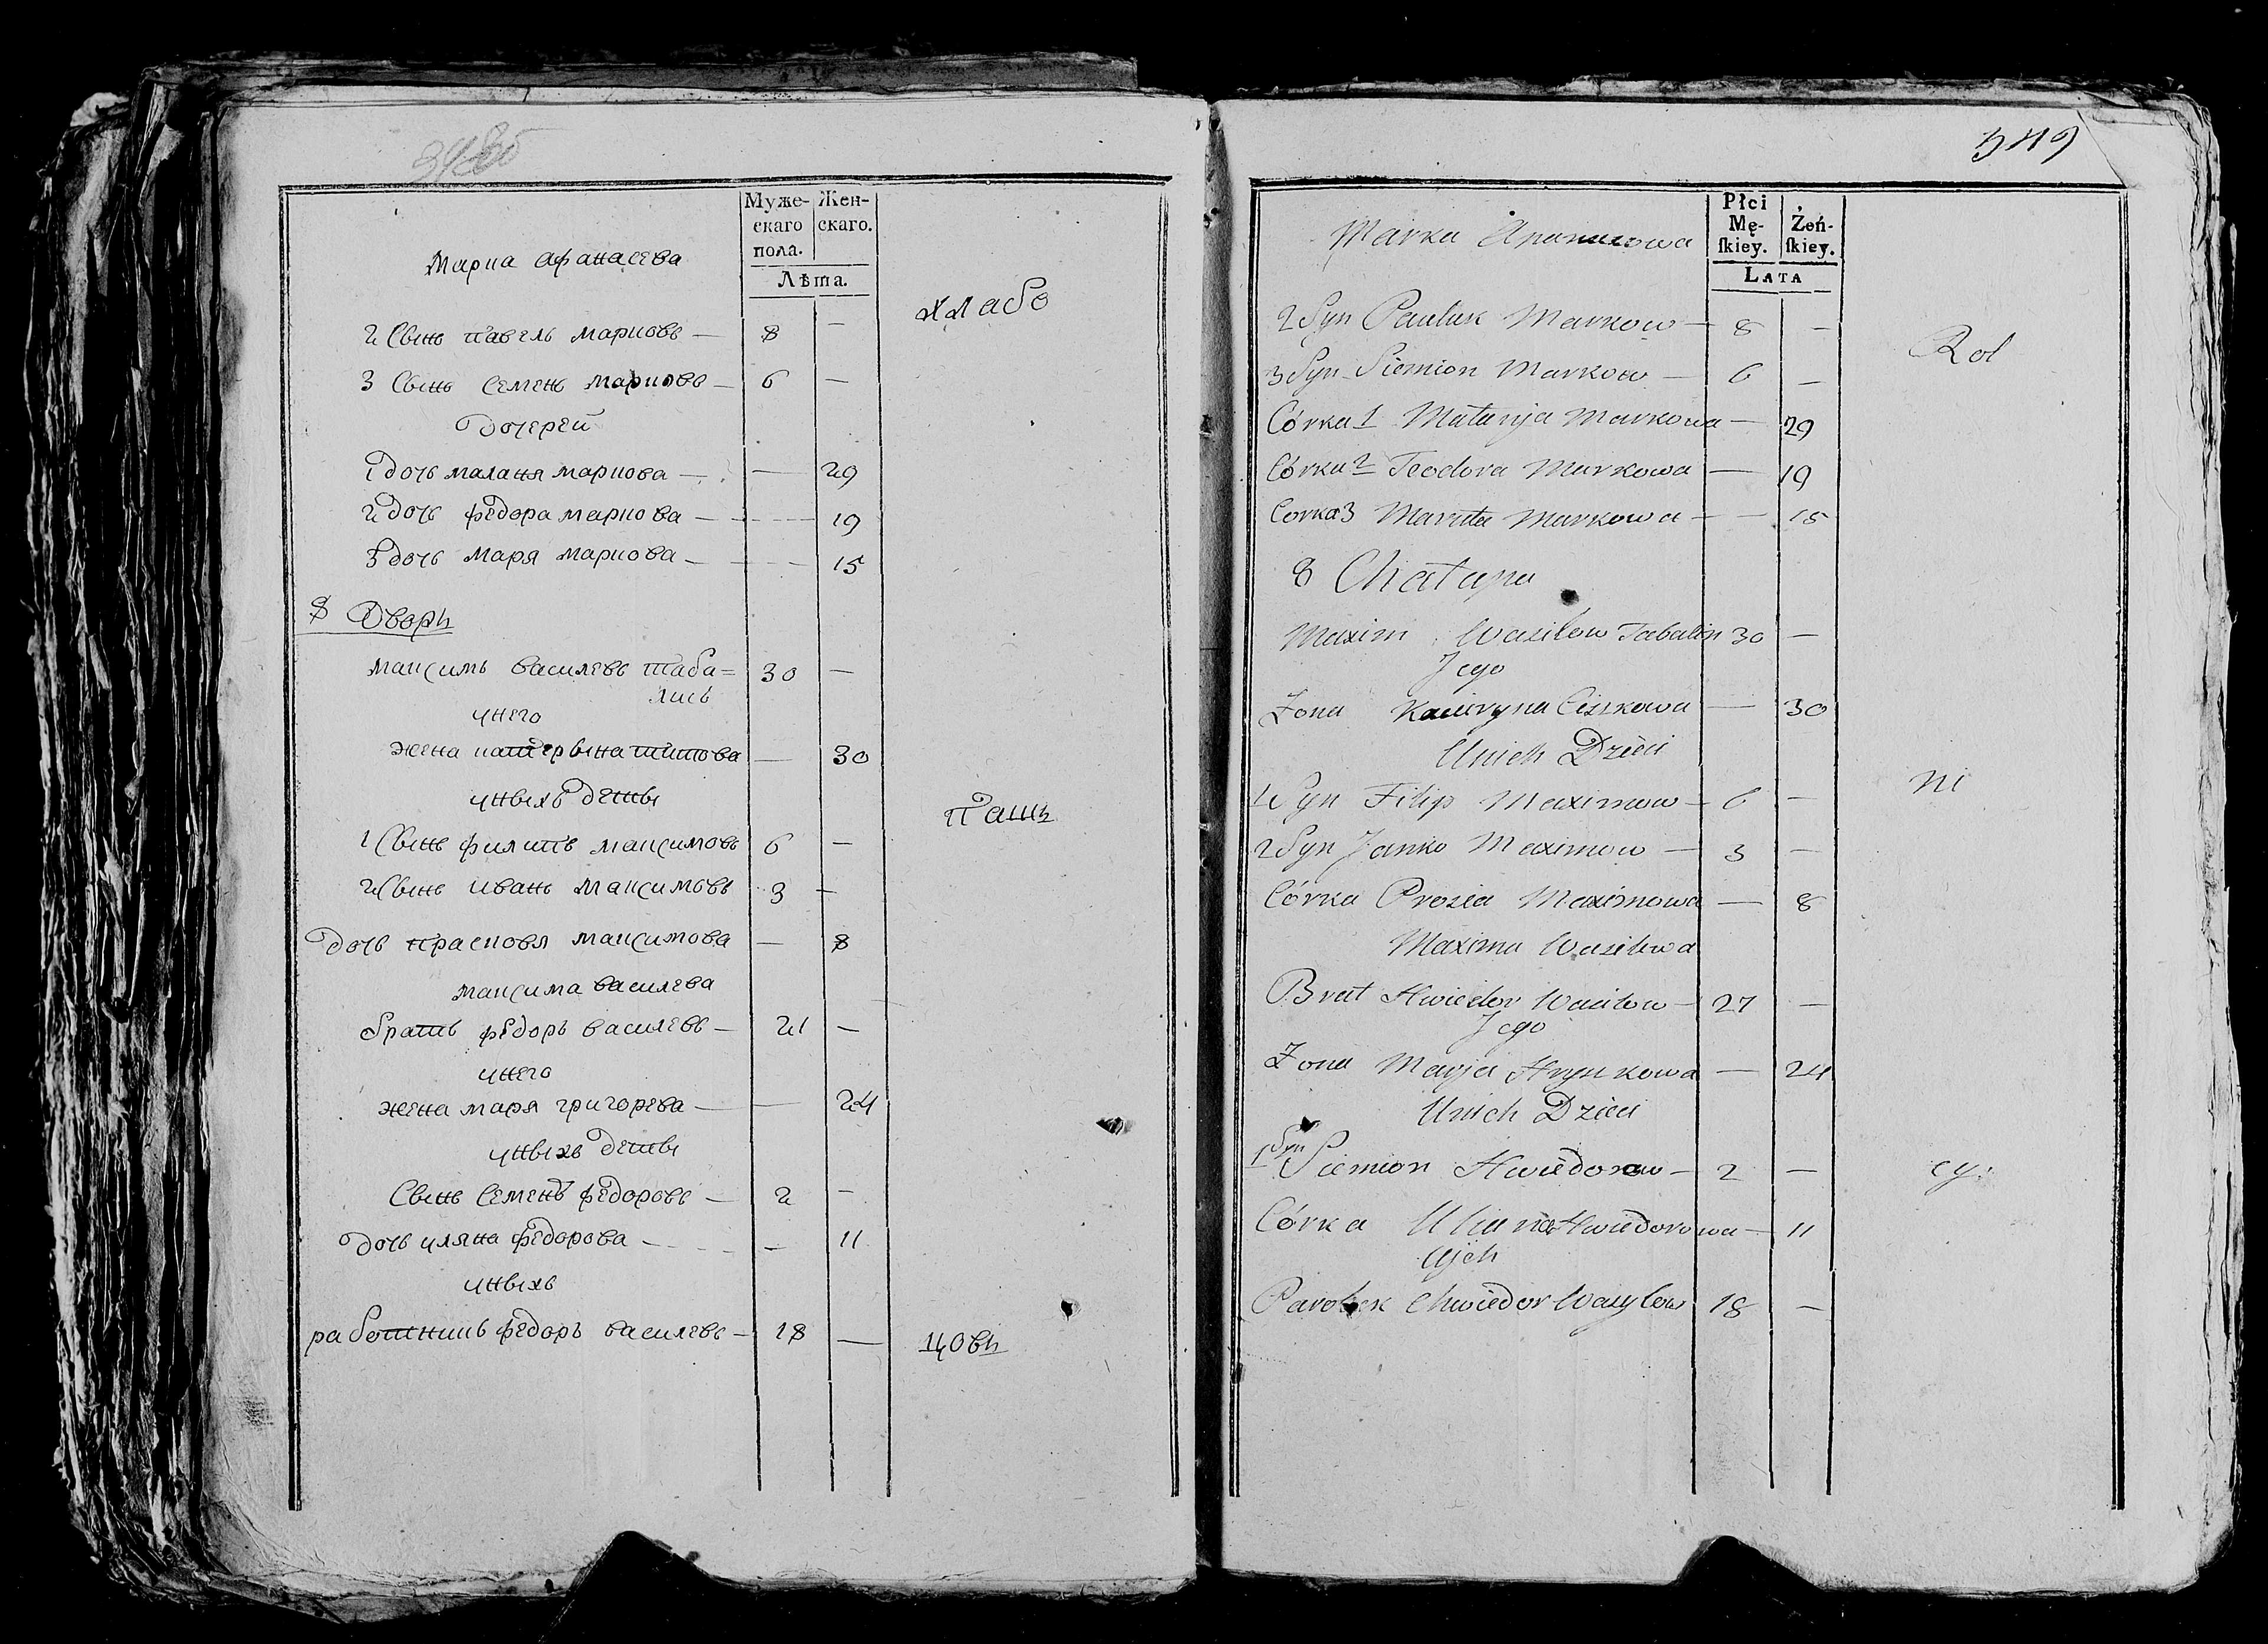 Муже-
скаго
пола.
Жен-
скаго.
Лѣта.
Марка Афанасева
2 Сынъ Павелъ Марковъ — 8 —
3 Сынъ Семенъ Марковъ — 6 —
Дочерей
1 дочь Маланя Маркова — — 29
2 дочь Федора Маркова — — 19
3 дочь Маря Маркова — — 15
8 Дворъ
Максимъ Василевъ Таба=
линъ 30 —
унего
жена Катерына Титова — 30
уныхъ Деты
1 Сынъ Филипъ Максимовъ 6 —
2 Сынъ Иванъ Максимовъ 3 —
Дочь Прасковя Максимова — 8
Максима Василева
братъ Федоръ Василевъ — 21 —
унего
жена Маря Григорева — — 24
уныхъ Деты
Сынъ Семенъ Федоровъ — 2 —
Дочь Уляна Федорова — — 11
уныхъ
работникъ Федоръ Василевъ — 18 —
хлебо
паш
цовъ
349
Płci
Mę-
skiey.
Żeń-
skiey.
LATA
Marka Apanasowa
2 Syn Pauluk Markow — 8 —
3 Syn Siemion Markow — 6 —
Córka 1 Małanja Markowa — 29
Córka 2 Teodora Markowa — 19
Corka 3 Maruta Markowa — — 15
8 Chatapa
Maxim Wasilow Tabalin 30 —
Jego
Zona Kateryna Ciszkowa — 30
Unich Dzieci
1 Syn Filip Maximow — 6 —
2 Syn Janko Maximow — 3 —
Córka Prosia Maximowa — 8
Maxima Wasilewa
Brat Hwiedor Wasilow — 27 —
Jego
Zona Marja Hrynkowa — 24
Unich Dzieci
1 Syn Siemion Hwiedorow — 2 —
Córka Uliana Hwiedorowa — 11
Ujch
Parobek Chwiedor Wasylow 18 —
Rol
ni
cy.